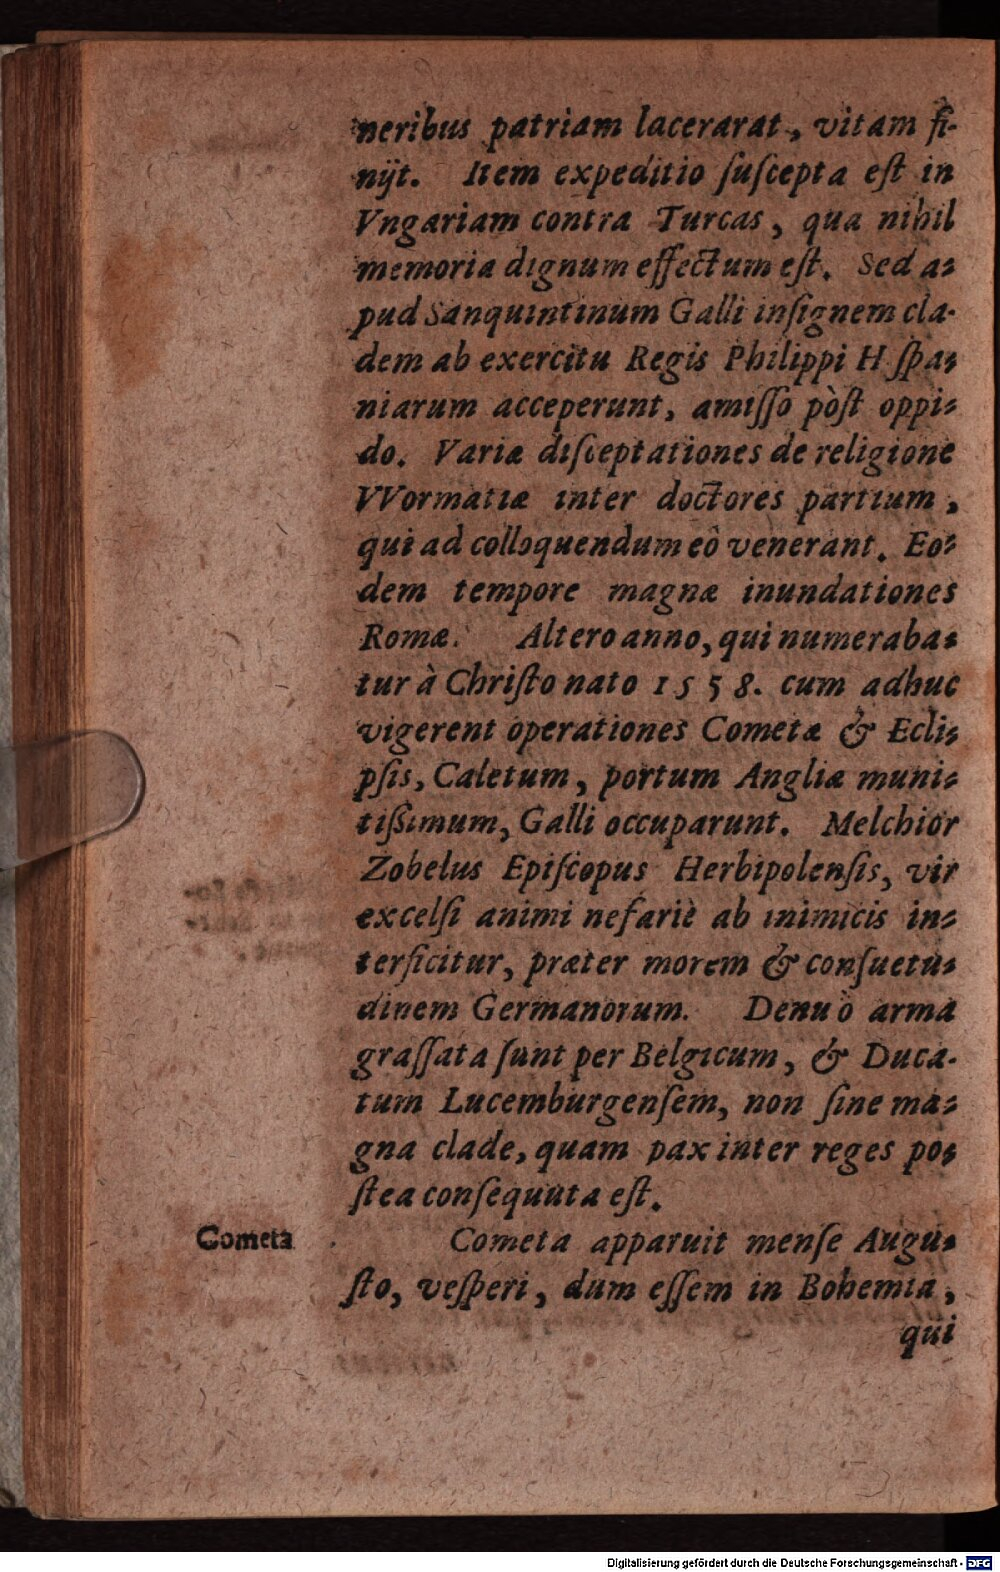 neribus patriam lacerarat, vitam fi-
nijt. Item expeditio ſuſcepta eſt in
Vngariam contra Turcas, qua nihil
memoria dignum effectum eſt. Sed a-
pud Sanquintinum Galli inſignem cla-
dem ab exercitu Regis Philippi H ſpa-
niarum acceperunt, amiſſo pòſt oppi-
do. Variæ diſceptationes de religione
VVormatiæ inter doctores partium,
qui ad colloquendum eò venerant. Eo-
dem tempore magnæ inundationes
Romæ. Altero anno, qui numeraba-
tur à Chriſto nato 1558. cum adhuc
vigerent operationes Cometæ & Ecli-
pſis, Caletum, portum Angliæ muni-
tiſſimum, Galli occuparunt. Melchior
Zobelus Epiſcopus Herbipolenſis, vir
excelſi animi nefariè ab inimicis in-
terficitur, præter morem & conſuetu-
dinem Germanorum. Denuò arma
graſſata ſunt per Belgicum, & Duca-
tum Lucemburgenſem, non ſine ma-
gna clade, quam pax inter reges po-
ſtea conſequuta eſt.
Cometa
Cometa apparuit menſe Augu-
ſto, veſperi, dum eſſem in Bohemia,
qui
Digitalisierung gefördert durch die Deutsche Forschungsgemeinschaft - DFG